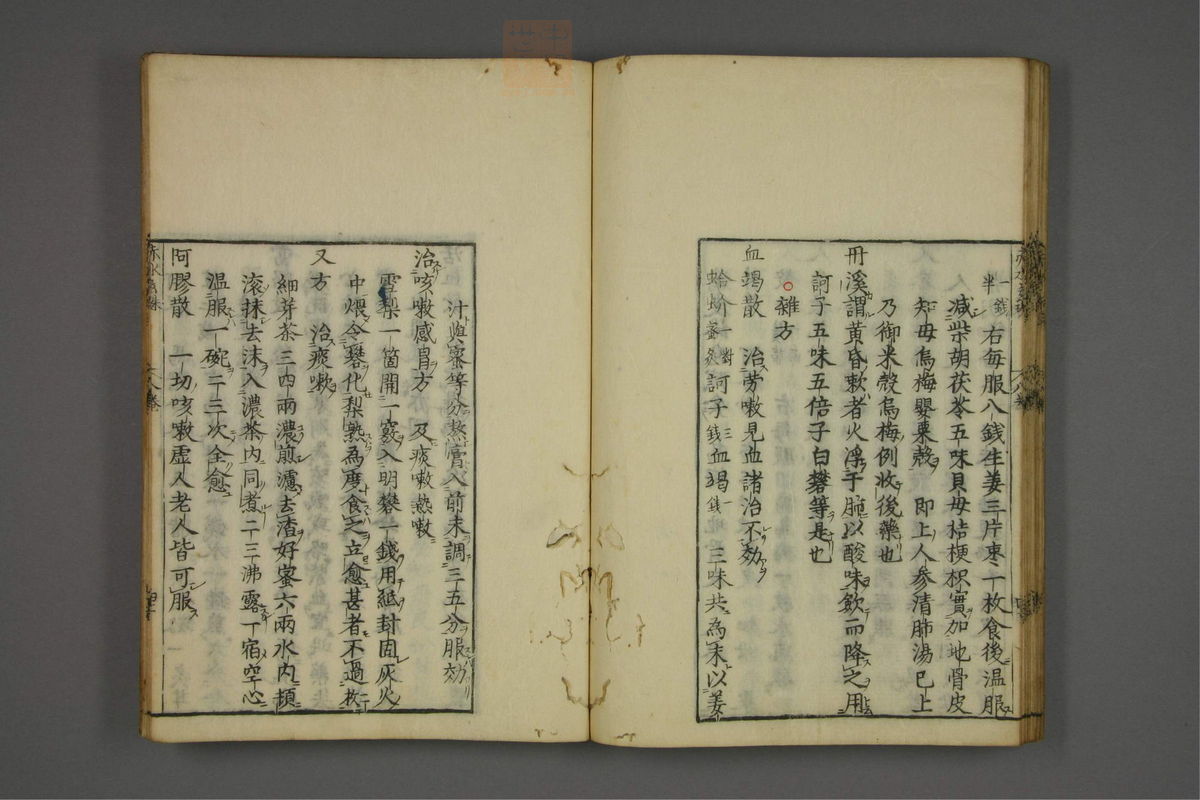 一錢半右毎服八錢生姜三片枣一枚食後温服
减柴胡茯苓五味貝母桔梗枳實加地骨皮
知母烏梅嬰粟殼 即上人参清肺湯已上
乃御米殼烏梅例收後藥也
丹溪謂黄昏嗽者火浮于肺以酸味斂而降之用
訶子五味五倍子白礬等是也
雜方
血竭散 治劳嗽見血諸治不効
蛤蚧一對蜜炙訶子三錢血竭一錢三味共為末以姜
汁與蜜等分熬膏入前末調三五分服効
治咳嗽感冒方 及痰嗽熱嗽
雪梨一箇開一竅入明礬一錢用紙封固灰火
中煨令礬化梨熟為度食之立愈甚者不過二枚
又方 治痰嗽
細芽茶三四兩濃煎濾去渣好蜜六兩水内頓
滚抹去沫入濃茶内同煮二三沸露一宿空心
温服一碗二三次全愈
阿膠散 一切咳嗽虚人老人皆可服